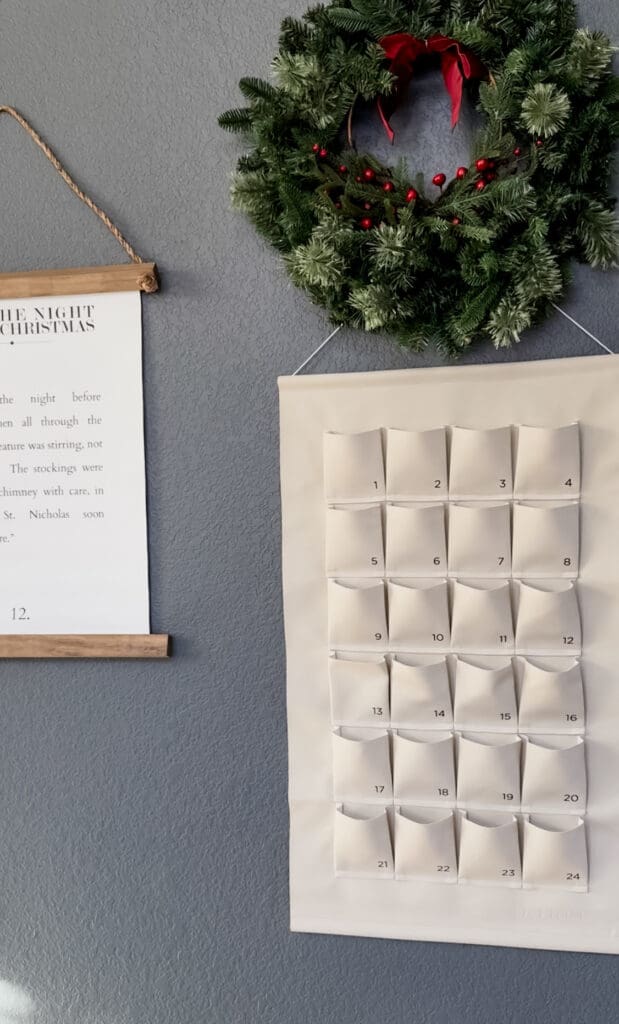 HE NIGHT
CHRISTMAS
the night before
en all through the
eature was stirring, not
The stockings were
chimney with care, in
St. Nicholas soon
re."
12.
1 2 3 4
5 6 7 8
9 10 11 12
13 14 15 16
17 18 19 20
21 22 23 24